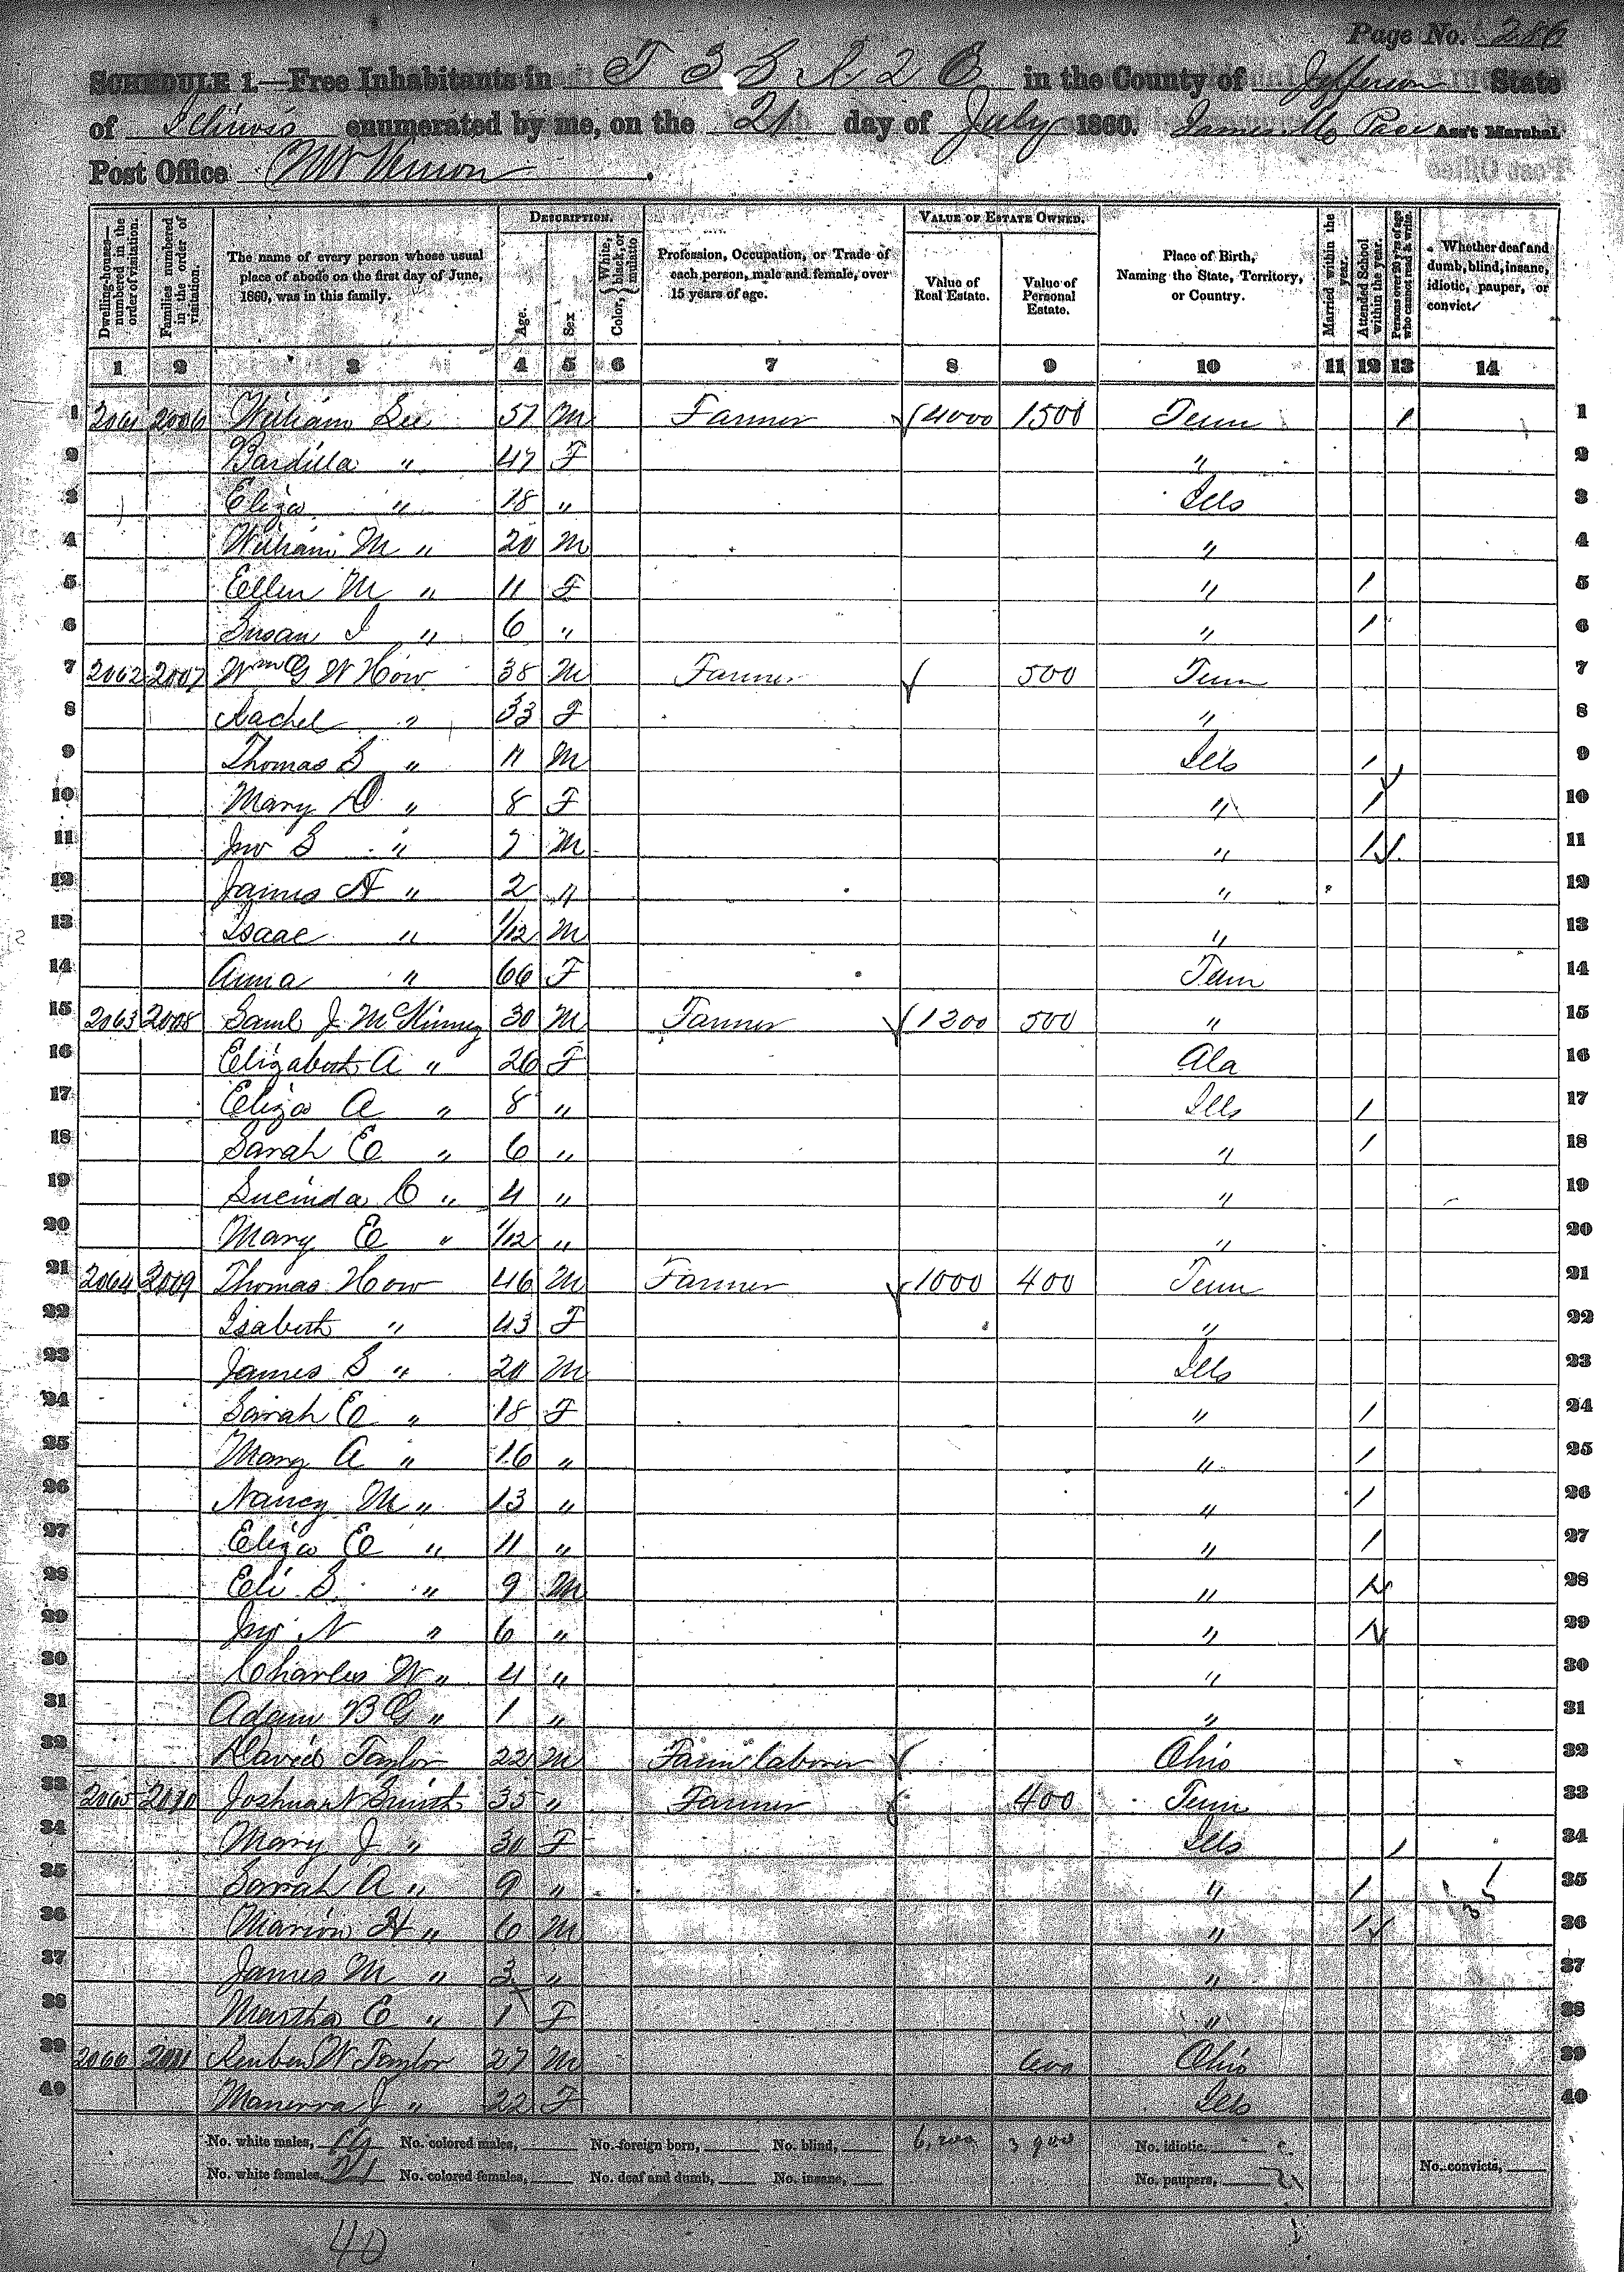 Page No. 286
SCHEDULE 1.—Free Inhabitants in T 3 S R. 2 E in the County of Jefferson State
of Illinois enumerated by me, on the 21 day of July 1860. James M Pace Ass't Marshal.
Post Office Mt Vernon.
Dwelling-houses—numbered in the order of visitation.
Families numbered in the order of visitation.
The name of every person whose usual place of abode on the first day of June, 1860, was in this family.
DESCRIPTION.
Age.
Sex
Color, { White, black, or mulatto
Profession, Occupation, or Trade of each person, male and female, over 15 years of age.
VALUE OF ESTATE OWNED.
Value of Real Estate.
Value of Personal Estate.
Place of Birth, Naming the State, Territory, or Country.
Married within the year.
Attended School within the year.
Persons over 20 y'rs of age who cannot read & write.
Whether deaf and dumb, blind, insane, idiotic, pauper, or convict.
1 2 3 4 5 6 7 8 9 10 11 12 13 14
1 2061 2006 William Lee 57 M Farmer 4000 1500 Tenn / 1
2 Bardilla " 47 F " 2
3 Eliza " 18 " Ills 3
4 William M " 20 M " 4
5 Ellen M " 11 F " / 5
6 Susan I " 6 " " / 6
7 2062 2007 Wm G W How 38 M Farmer 500 Tenn 7
8 Rachel " 33 F " 8
9 Thomas S " 11 M Ills / 9
10 Mary D " 8 F " / 10
11 Jno S " 7 M " / 11
12 James A " 2 " " 12
13 Isaac " 1/12 M " 13
14 Anna " 66 F Tenn 14
15 2063 2008 Saml J McKinney 30 M Farmer 1200 500 " 15
16 Elizabeth A " 26 F Ala 16
17 Eliza A " 8 " Ills / 17
18 Sarah E " 6 " " / 18
19 Lucinda C " 4 " " 19
20 Mary E " 1/12 " " 20
21 2064 2009 Thomas How 46 M Farmer 1000 400 Tenn 21
22 Isabeth " 43 F " 22
23 James S " 20 M Ills 23
24 Sarah E " 18 F " / 24
25 Mary A " 16 " " / 25
26 Nancy M " 13 " " / 26
27 Eliza E " 11 " " / 27
28 Eli S. " 9 M " / 28
29 Jno N " 6 " " / 29
30 Charles W " 4 " " 30
31 Adam B G " 1 " " 31
32 David Taylor 22 M Farm laborer Ohio 32
33 2065 2010 Joshua N Smith 35 " Farmer 400 Tenn 33
34 Mary J " 30 F Ills / 34
35 Sarah A " 9 " " / 35
36 Marion H " 6 M " / 36
37 James M " 3 " " 37
38 Martha E " 1 F " 38
39 2066 2011 Reuben W Taylor 27 M Ohio 39
40 Manerva J " 22 F Ills 40
No. white males, 19 No. colored males, No. foreign born, No. blind, 6,200 3 900 No. idiotic.
No. white females, 21 No. colored females, No. deaf and dumb, No. insane, No. paupers, No. convicts,
40